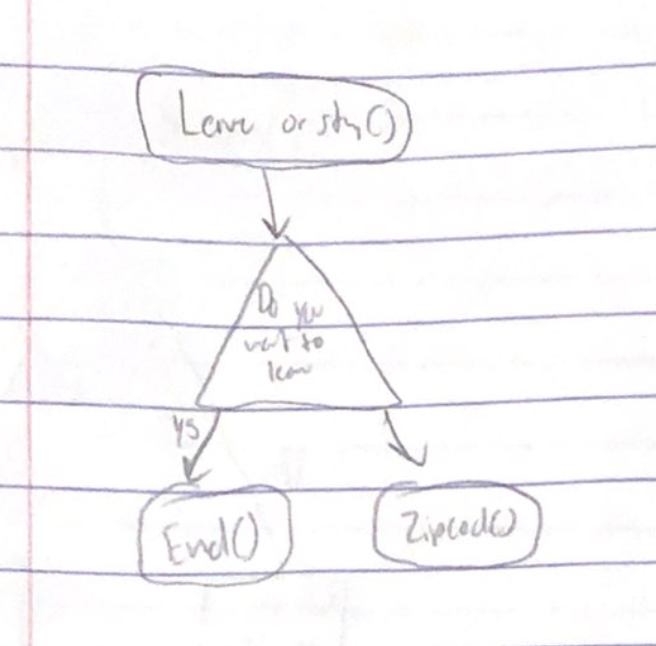 Leave or stay()
Do you
want to
leave
yes
End()
Zipcode()